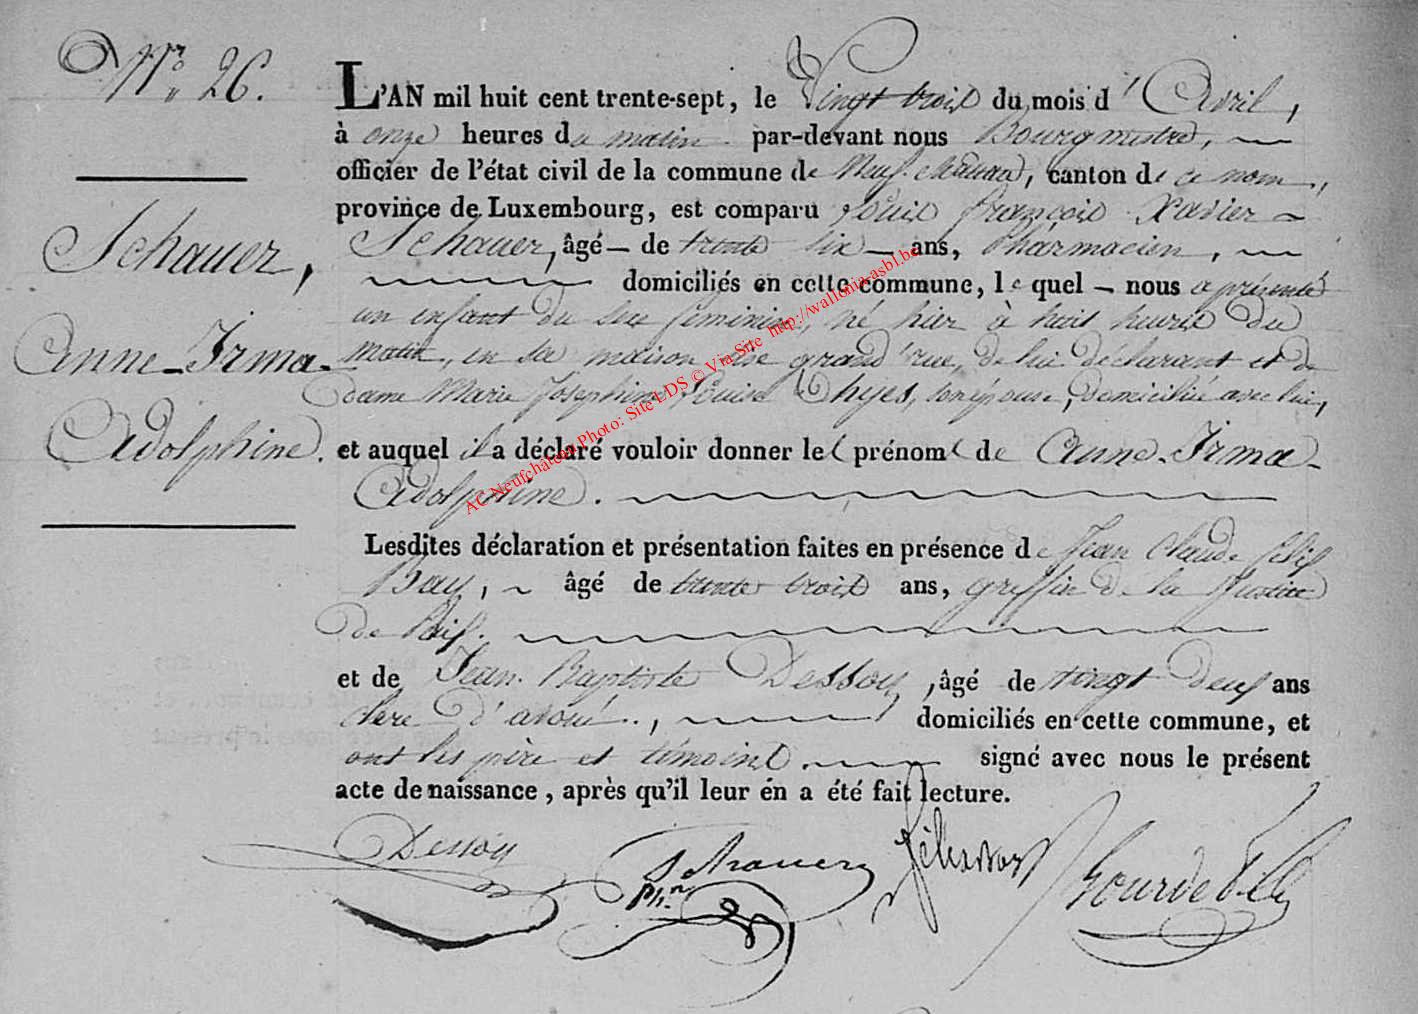 Nº 26.
L'AN mil huit cent trente-sept, le Vingt trois du mois d'Avril,
à onze heures du matin par-devant nous Bourgmestre,
officier de l'état civil de la commune de Neufchâteau, canton de ce nom,
province de Luxembourg, est comparu Louis François Xavier
Schauer, âgé de trente six ans, Pharmacien,
domiciliés en cette commune, le quel nous a présenté
un enfant du sexe féminin, né hier à huit heures du
matin, en sa maison grand'rue, de lui déclarant et de
dame Marie Josephine Louise Thyes, son épouse, domiciliée avec lui,
et auquel il a déclaré vouloir donner les prénoms de Anne-Irma-
Adolphine.
Schauer,
Anne-Irma-
Adolphine.
AC Neufchâteau Photo: Site LDS © Via Site http://wallonia-asbl.be
Lesdites déclaration et présentation faites en présence de Jean Claude
âgé de trente trois ans, greffier de la Justice
de Paix.
et de Jean Baptiste Dessoy, âgé de vingt neuf ans
clerc d'avoué, domiciliés en cette commune, et
ont les père et témoins signé avec nous le présent
acte de naissance, après qu'il leur en a été fait lecture.
Dessoy Schauer
phn